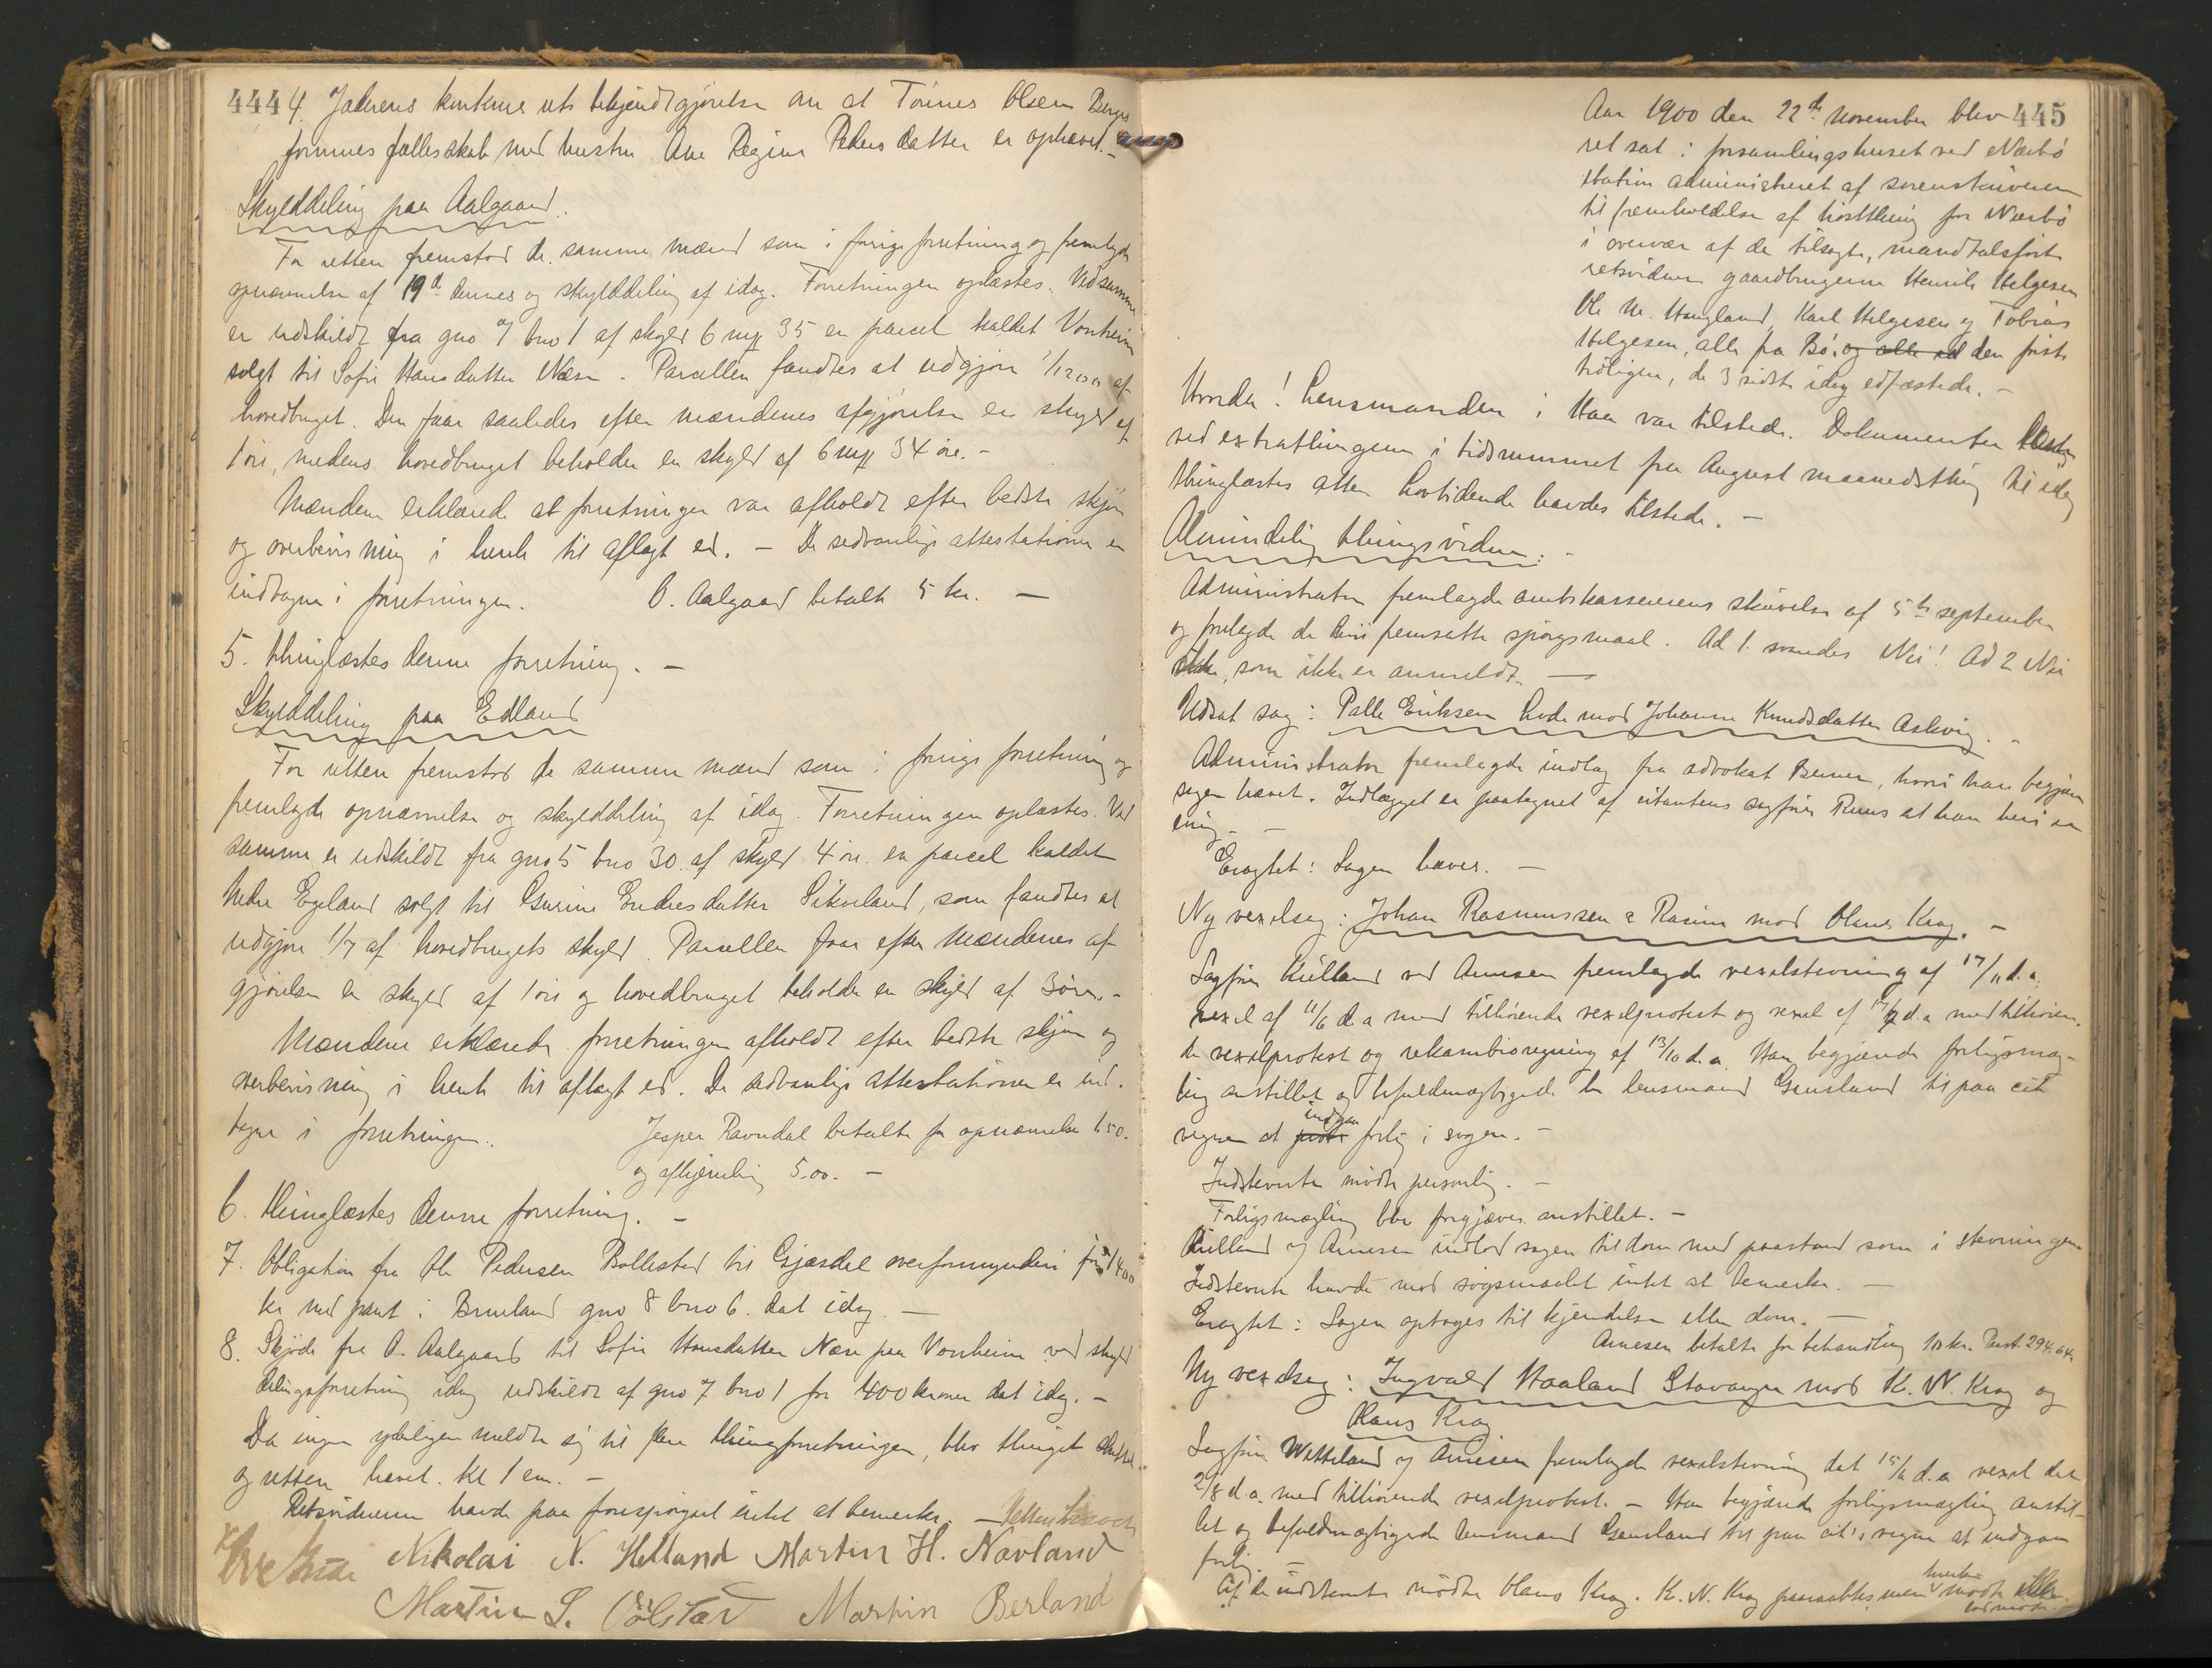 444 4. Jæderens kontrære uts bekjendtgjørelse om at Tønnes Olsen Berges
formuesfællesskab med hustru Ane Regine Pedersdatter er ophævet. -
Skylddeling paa Aalgaard.
For retten fremstod de samme mænd som i forrige forretning og fremlagde
opnævnelse af 19de dennes og skylddeling af idag. Forretningen oplæstes. Ved samme
er udskildt fra gno 7 bno 1 af skyld 6 mrk 35 en parcel kaldet Vonheim
solgt til Sofie Hansdatter Næse. Parcellen fandtes at udgjøre 1/1200 af
hovedbruget. Den faar saaledes efter mændenes afgjørelse en skyld af
1 øre, medens hovedbruget beholder en skyld af 6 mrk 34 øre. -
Mændene erklærede at forretningen var afholdt efter bedste skjøn
og overbevisning i henh. til aflagt ed. - De sedvanlige attestationer er
indtagne i forretningen. O. Aalgaard betalte 5 kr. -
5. Thinglæstes denne forretning. -
Skylddeling paa Edland
For retten fremstod de samme mænd som i forrige forretning og
fremlagde opnævnelse og skylddeling af idag. Forretningen oplæstes. Ved
samme er udskildt fra gno 5 bno 30 af skyld 4 øre en parcel kaldet
Nedre Egeland solgt til Gurine Endresdatter Sikveland, som fandtes at
udgjøre 1/7 af hovedbrugets skyld. Parcellen faar efter mændenes af-
gjørelse en skyld af 1 øre og hovedbruget beholder en skyld af 3 øre. -
Mændene erklærede forretningen afholdt efter bedste skjøn og
overbevisning i henh. til aflagt ed. De sedvanlige attestationer er ind-
tagne i forretningen. Jesper Ravndal betalte for opnævnelse 1.50.
og afhjemling 5.00. -
6. Thinglæstes denne forretning. -
7. Obligation fra Ole Pedersen Bollestad til Gjæsdal overformynderi for 1400
kr med pant i Bruland gno 8 bno 6. dat idag. -
8. Skjøde fra O. Aalgaard til Sofie Hansdatter Næse paa Vonheim ved skyld
delingsforretning idag udskildt af gno 7 bno 1 for 400 kroner dat idag. -
Da ingen yderligere meldte sig til flere thingforretninger, blev thinget sluttet
og retten hævet. Kl 1 em. -
Retsvidnerne havde paa forespørgsel intet at bemerke. - Retten hævet
Nikolai N. Helland Martin H. Navland
Martin S. Ødstar Martin Berland
Aar 1900 den 22de november blev 445
ret sat i forsamlingshuset ved Nærbø
station administreret af sorenskriveren
til fremholdelse af høstthing for Nærbø
i overvær af de tilsagte, mandtalsførte
retsvidner gaardbrugerne Henrik Helgesen
Ole M. Haugland, Karl Helgesen og Tobias
Helgesen, alle fra Bø, og alle ed den første
tidligere, de 3 sidste idag edfæstede. -
Hvorda! Lensmanden i Haa var tilstede. Dokumenter læst
ved extrathingene i tidsrummet fra August maanedsthing til idag
thinglæstes atter. Lovtidende havdes tilstede. -
Almindelig thingsvidne. -
Administrator fremlagde amtskassererens skrivelse af 5te september
og forelagde de deri fremsatte spørgsmaal. Ad 1. svaredes Nei! Ad 2 Nei
ikke, som ikke er anmeldt. -
Udsat sag: Palle Eriksen Lode mod Johanne Knudsdatter Askvig. -
Administrator fremlagde indlæg fra advokat Berner, hvori han begjærer
sagen hævet. Indlægget er paategnet af citantens sagfører Ruus at han heri er
enig. -
Eragtet: Sagen hæves. -
Ny vexelsag: Johan Rasmussen & Rasine mod Olaus Krag. -
Sagfører Kielland ved Arnesen fremlagde vexelstevning af 17/11 d.a.
vexel af 11/6 d.a med tilhørende vexelprotest og vexel af 17/7 d.a med tilhøren-
de vexelprotest og rekambioregning af 13/10 d.a. Han begjærede forligsmæg-
ling anstillet og befuldmægtigede hr lensmand Grusland til paa cit
vegne at indgaa forlig i sagen. -
Indstevnte mødte personlig. -
Forligsmægling blev forgjæves anstillet. -
Kielland v/ Arnesen indlod sagen til dom med paastand som i stevningen.
Indstevnte havde mod søgsmaalet intet at bemerke. -
Eragtet: Sagen optages til kjendelse eller dom. -
Arnesen betalte for behandling 10 kr. Prot. 294.64.
Ny vexelsag: Ingvald Haaland Stavanger mod K. N. Krag og
Olaus Krag
Sagfører Watteland v/ Arnesen fremlagde vexelstevning dat 15/11 d.a. vexel dat
2/8 d.a. med tilhørende vexelprotest. - Han begjærede forligsmægling anstil-
let og befuldmægtigede lensmand Grusland til paa cit's vegne at indgaa
forlig -
Af de indstevnte mødte Olaus Krag. K. N. Krag paaraabtes, men mødte ikke